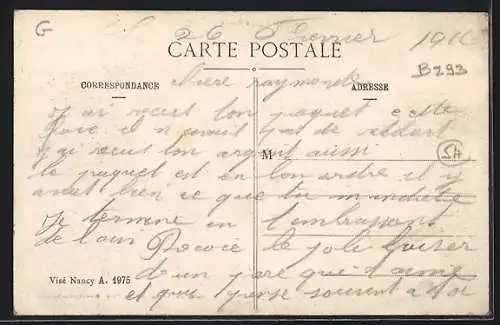 G
26 Fevrier 191
CARTE POSTALE
B293
CORRESPONDANCE
ADRESSE
chere raymonde
j ai recus ton paquet cette
fois il n avait pas de retard
j ai recus ton argent aussi
M
SH
le paquet est en bon ordre il y
avait bien ce que tu
Je termine en t'embrassant
de loin le joli baiser
d'un pere qui t'aime
et qui pense souvent a toi
Visé Nancy A. 1975